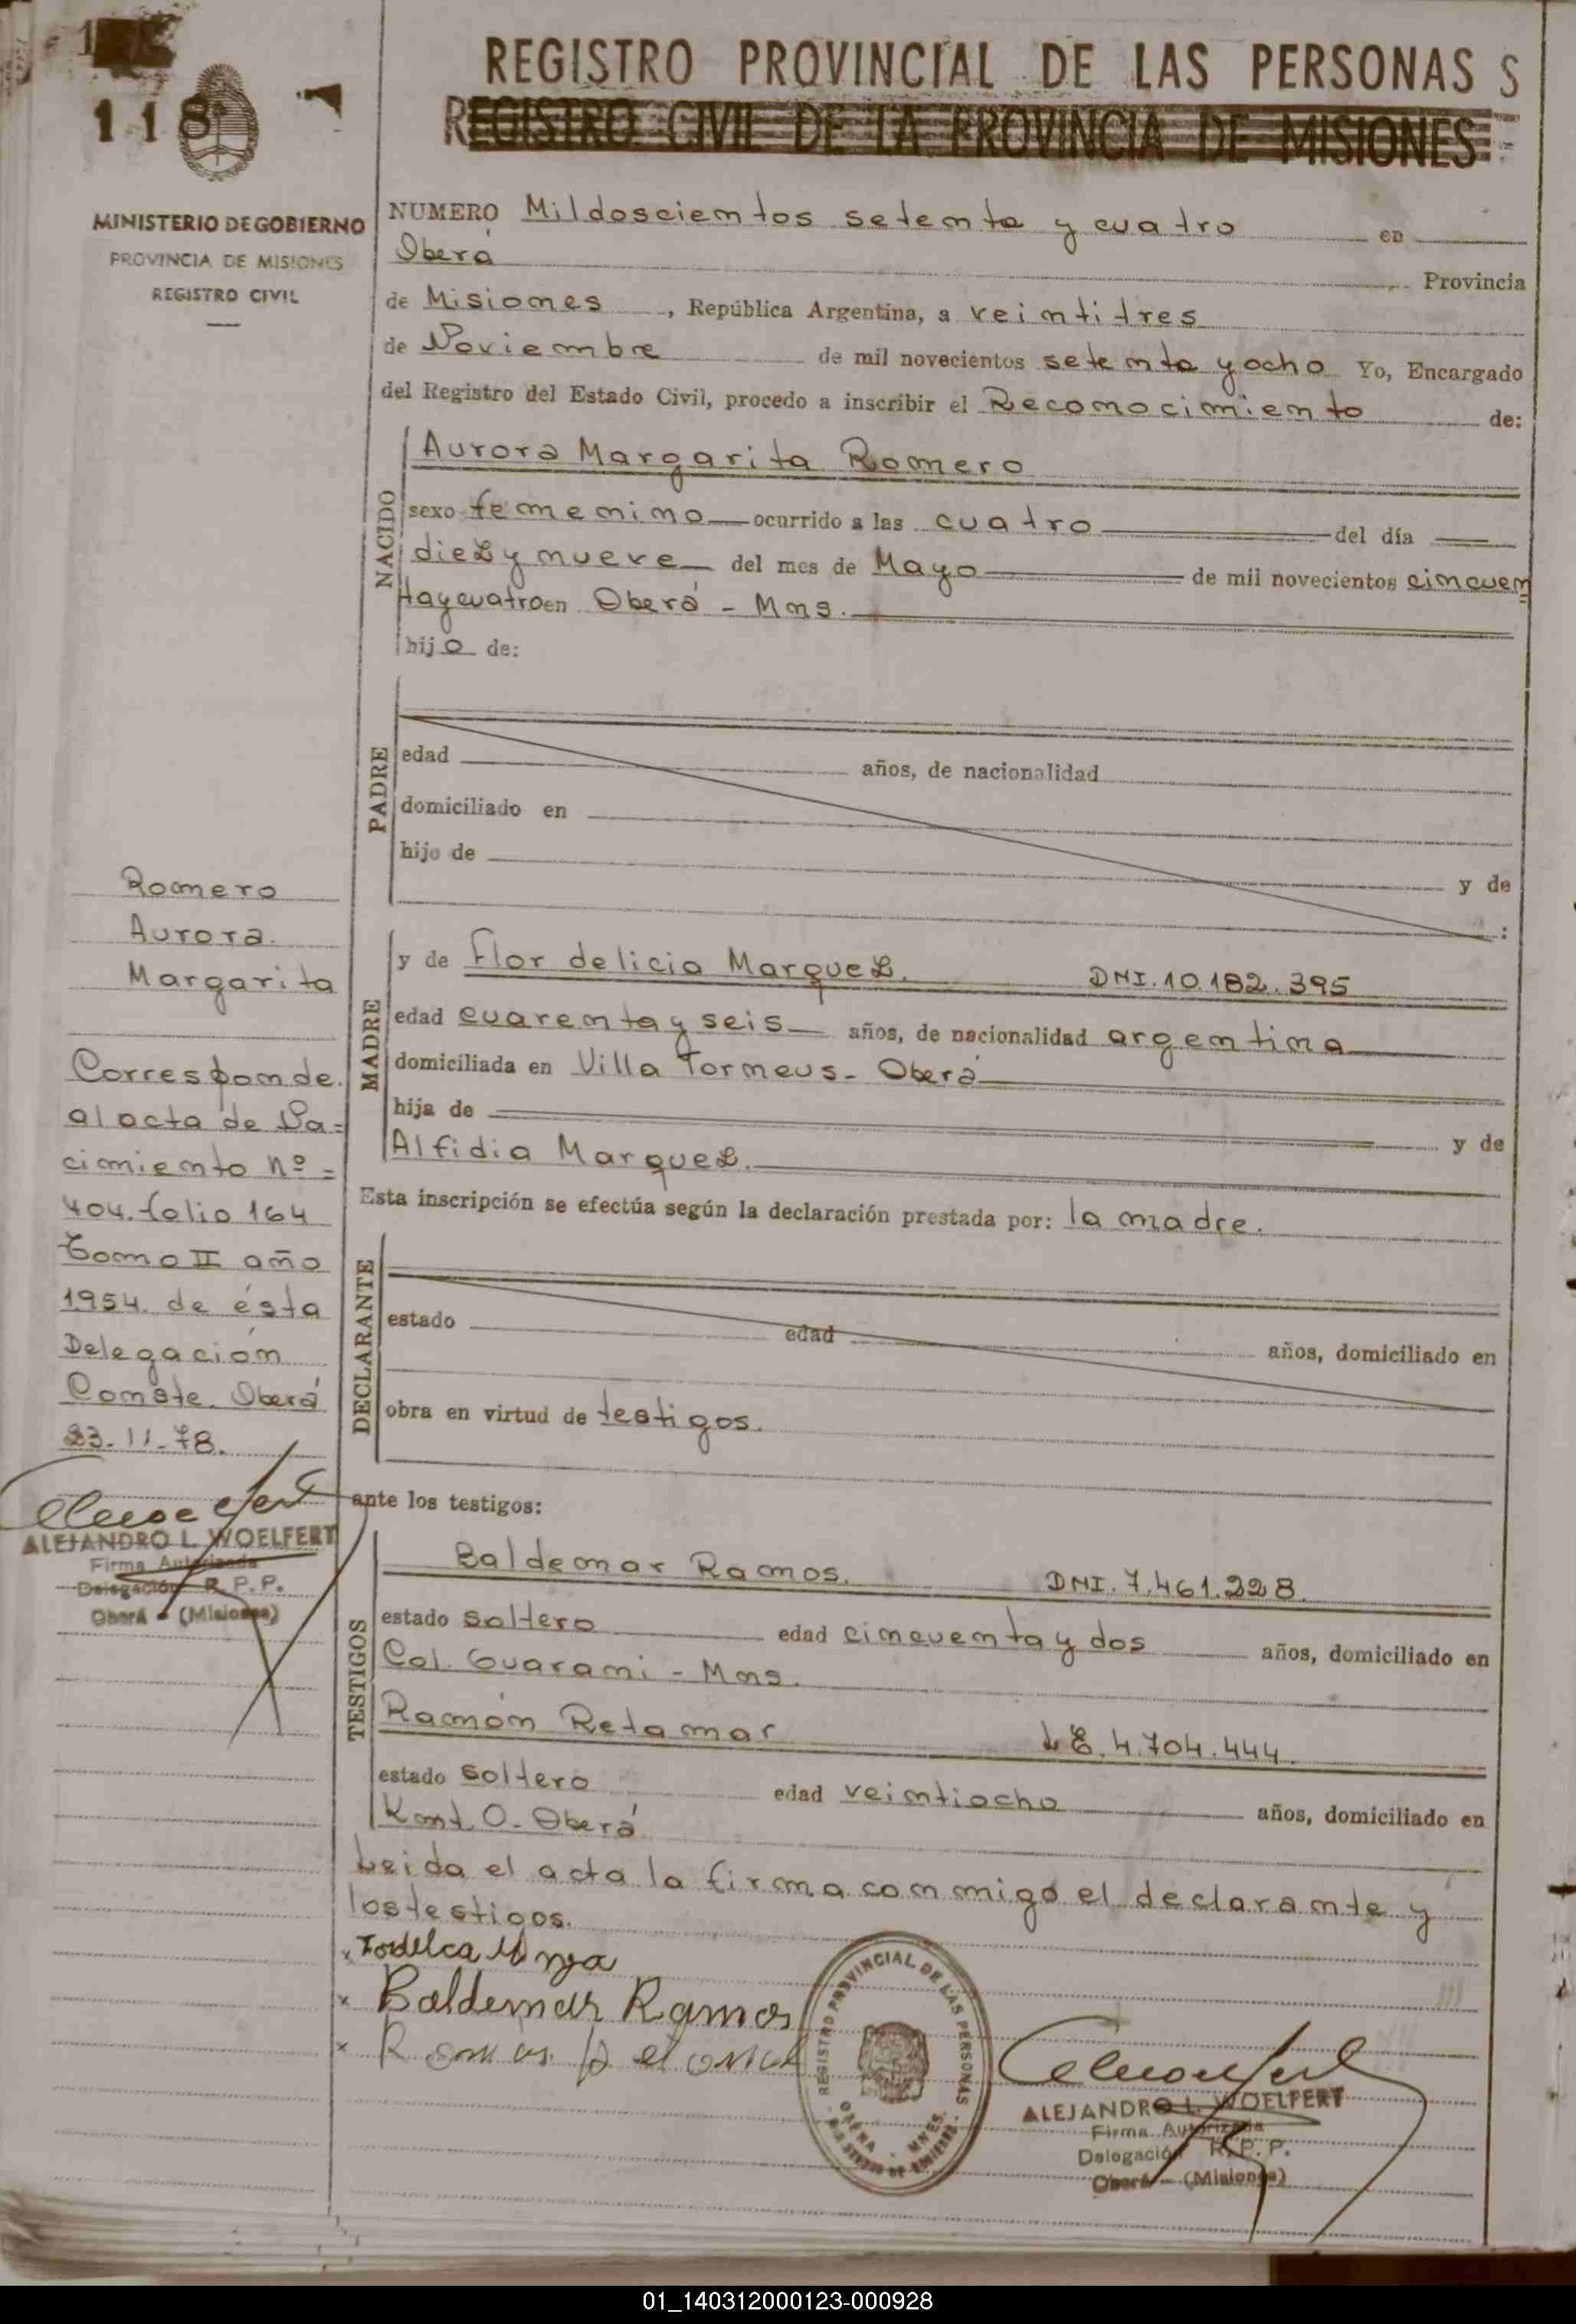 118
REGISTRO PROVINCIAL DE LAS PERSONAS S
REGISTRO CIVIL DE LA PROVINCIA DE MISIONES
MINISTERIO DE GOBIERNO
PROVINCIA DE MISIONES
REGISTRO CIVIL
NUMERO Mildoscientos setenta y cuatro en
Oberá Provincia
de Misiones, República Argentina, a veintitres
de Noviembre de mil novecientos setenta y ocho Yo, Encargado
del Registro del Estado Civil, procedo a inscribir el Reconocimiento de:
NACIDO
Aurora Margarita Romero
sexo femenino ocurrido a las cuatro del día
diez y nueve del mes de Mayo de mil novecientos cincuen=
tay cuatro en Oberá - Mns.
hijo de:
PADRE
edad años, de nacionalidad
domiciliado en
hijo de y de
:
MADRE
y de Flor delicia Marquez. DNI. 10.182.395
edad cuarenta y seis años, de nacionalidad argentina
domiciliada en Villa Torneus - Oberá
hija de y de
Alfidia Marquez.
Esta inscripción se efectúa según la declaración prestada por: la madre.
DECLARANTE
estado edad años, domiciliado en
obra en virtud de testigos.
ante los testigos:
TESTIGOS
Baldemar Ramos. DNI. 7.461.228.
estado soltero edad cincuenta y dos años, domiciliado en
Col. Guarani - Mns.
Ramón Retamar L.E. 4.704.444.
estado soltero edad veintiocho años, domiciliado en
Kont. O. Oberá
Leida el acta la firma con migo el declarante y
los testigos.
x
x Baldemar Ramos
x
Romero
Aurora
Margarita
Corresponde
al acta de Na=
cimiento Nº =
404. folio 164
Tomo II año
1954. de ésta
Delegación
Conste. Oberá
23-11-78.
ALEJANDRO L. WOELFERT
Firma Autorizada
Delegación R.P.P.
Oberá - (Misiones)
REGISTRO PROVINCIAL DE LAS PERSONAS
OBERA - MNES.
ALEJANDRO L. WOELFERT
Firma Autorizada
Delegación R.P.P.
Oberá - (Misiones)
01_140312000123-000928